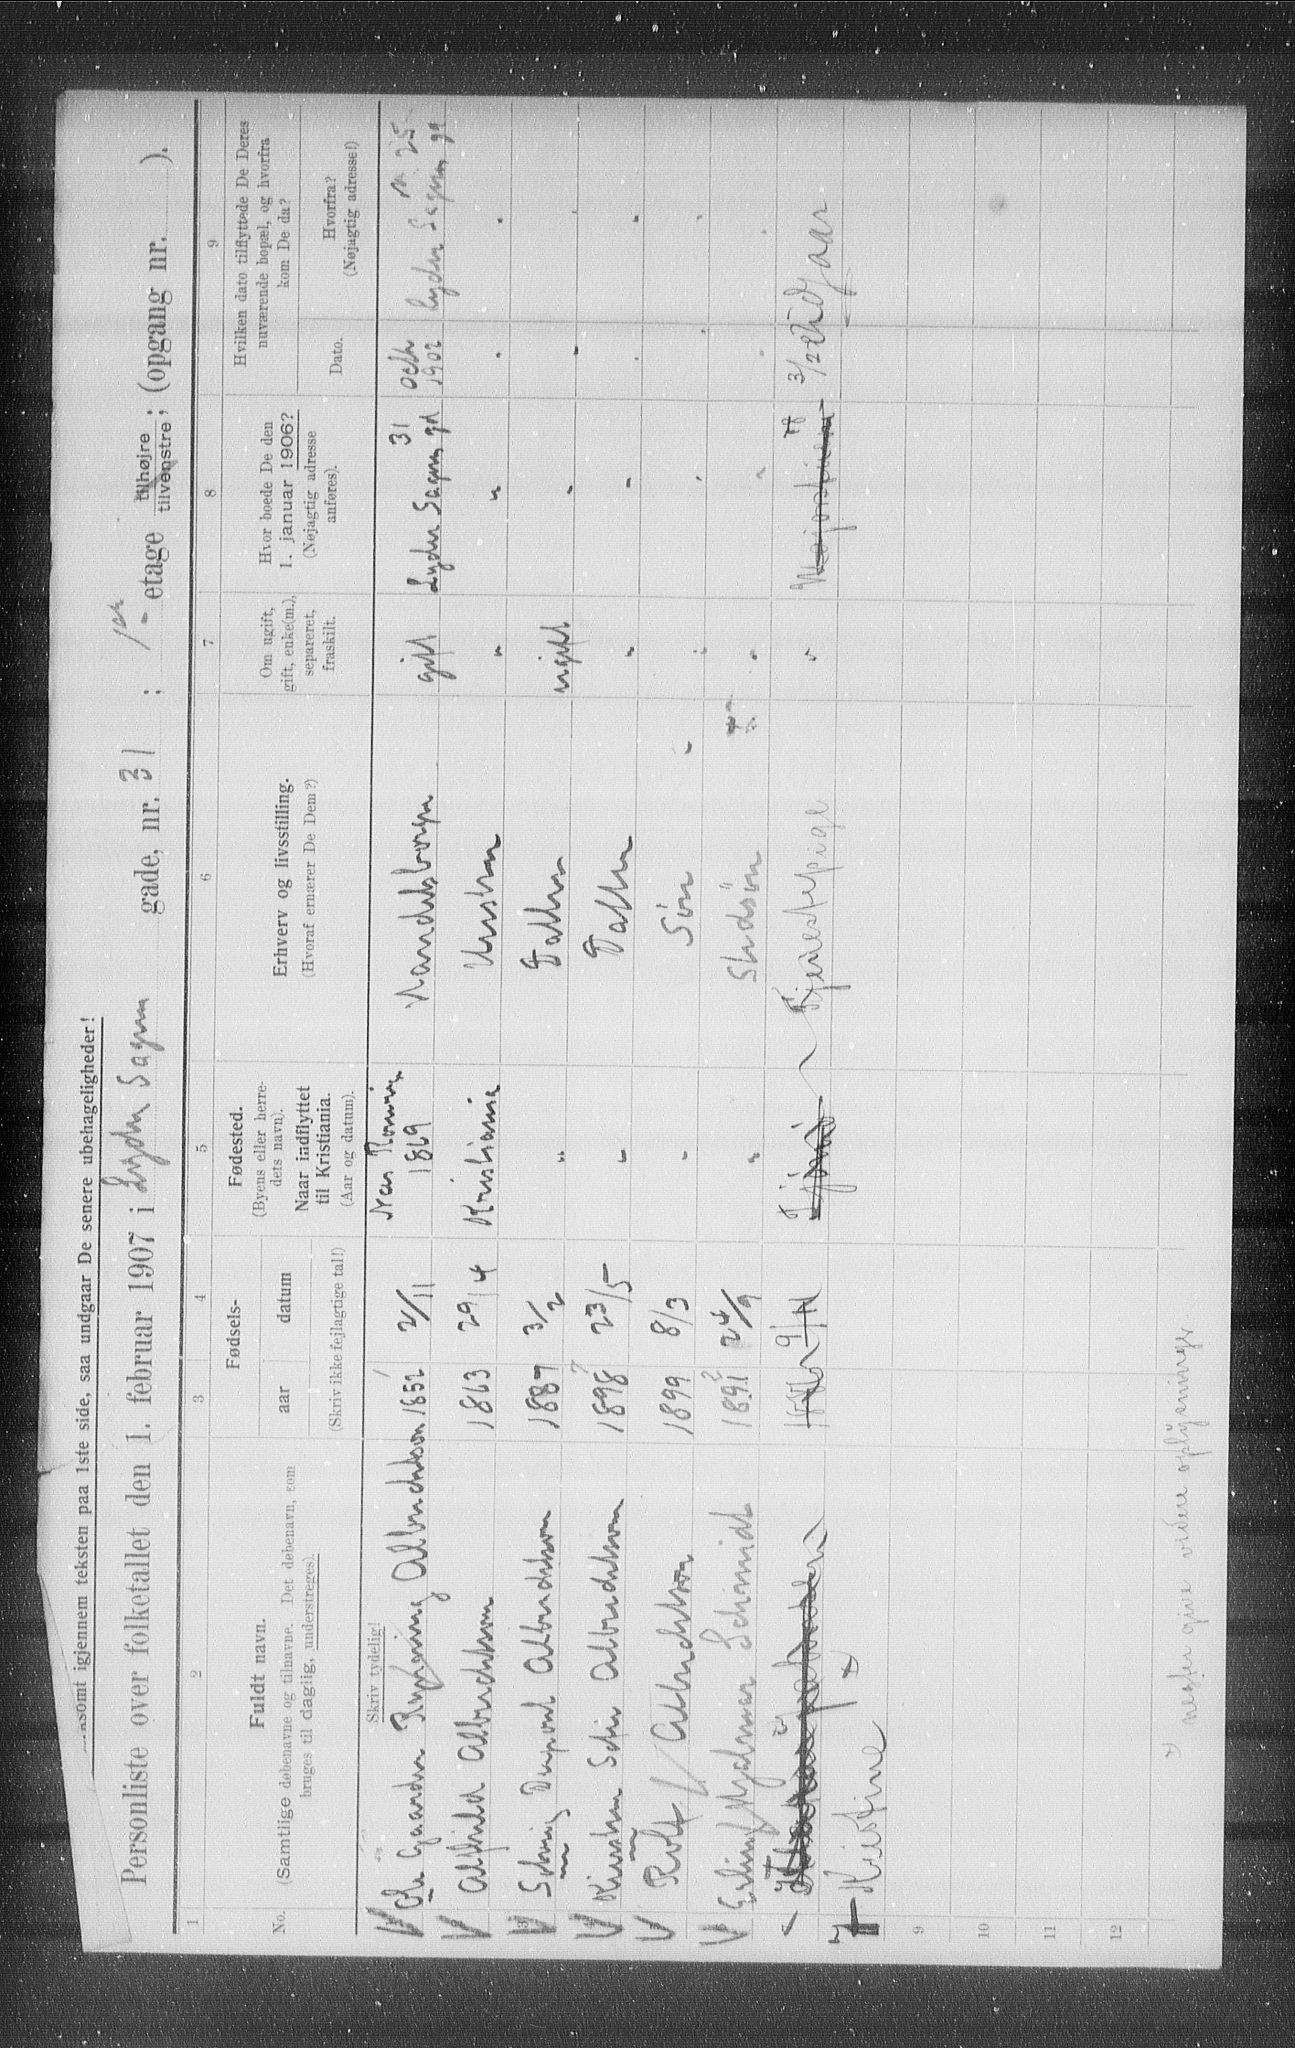 ...nsomt igjennem teksten paa 1ste side, saa undgaar De senere ubehageligheder!
Personliste over folketallet den 1. februar 1907 i Lyder Sagens gade, nr. 31 ; 1ste etage tilhøjre tilvenstre; (opgang nr. ).
1 2 3 4 5 6 7 8 9
No.
Fuldt navn.
(Samtlige døbenavne og tilnavne. Det døbenavn, som
bruges til daglig, understreges).
Skriv tydelig!
Fødsels-
aar datum
(Skriv ikke fejlagtige tal!)
Fødested.
(Byens eller herre-
dets navn).
Naar indflyttet
til Kristiania.
(Aar og datum).
Erhverv og livsstilling.
(Hvoraf ernærer De Dem?)
Om ugift,
gift, enke(m.),
separeret,
fraskilt.
Hvor boede De den
1. januar 1906?
(Nøjagtig adresse
anføres).
Hvilken dato tilflyttede De Deres
nuværende bopæl, og hvorfra
kom De da?
Dato.
Hvorfra?
(Nøjagtig adresse!)
Ole Gaarder Albrechtson 1852 2/11 1869 gift Lyder Sagens gd 31 1902 Lyder Sagens gd 25
Alfhild Albrechtson 1863 29/4 Kristiania Hustru " " " "
Solveig Albrechtson 1887 3/2 " Datter ugift " " "
Kirsten Albrechtson 1898 23/5 " Datter " " " "
Rolf Albrechtson 1899 8/3 " Søn " " " "
Erling Hjalmar Schmidt 24/9 " " " "
7 Kristine Tjenestepige " 3/2 aar
9
10
11
12
give videre oplysninger